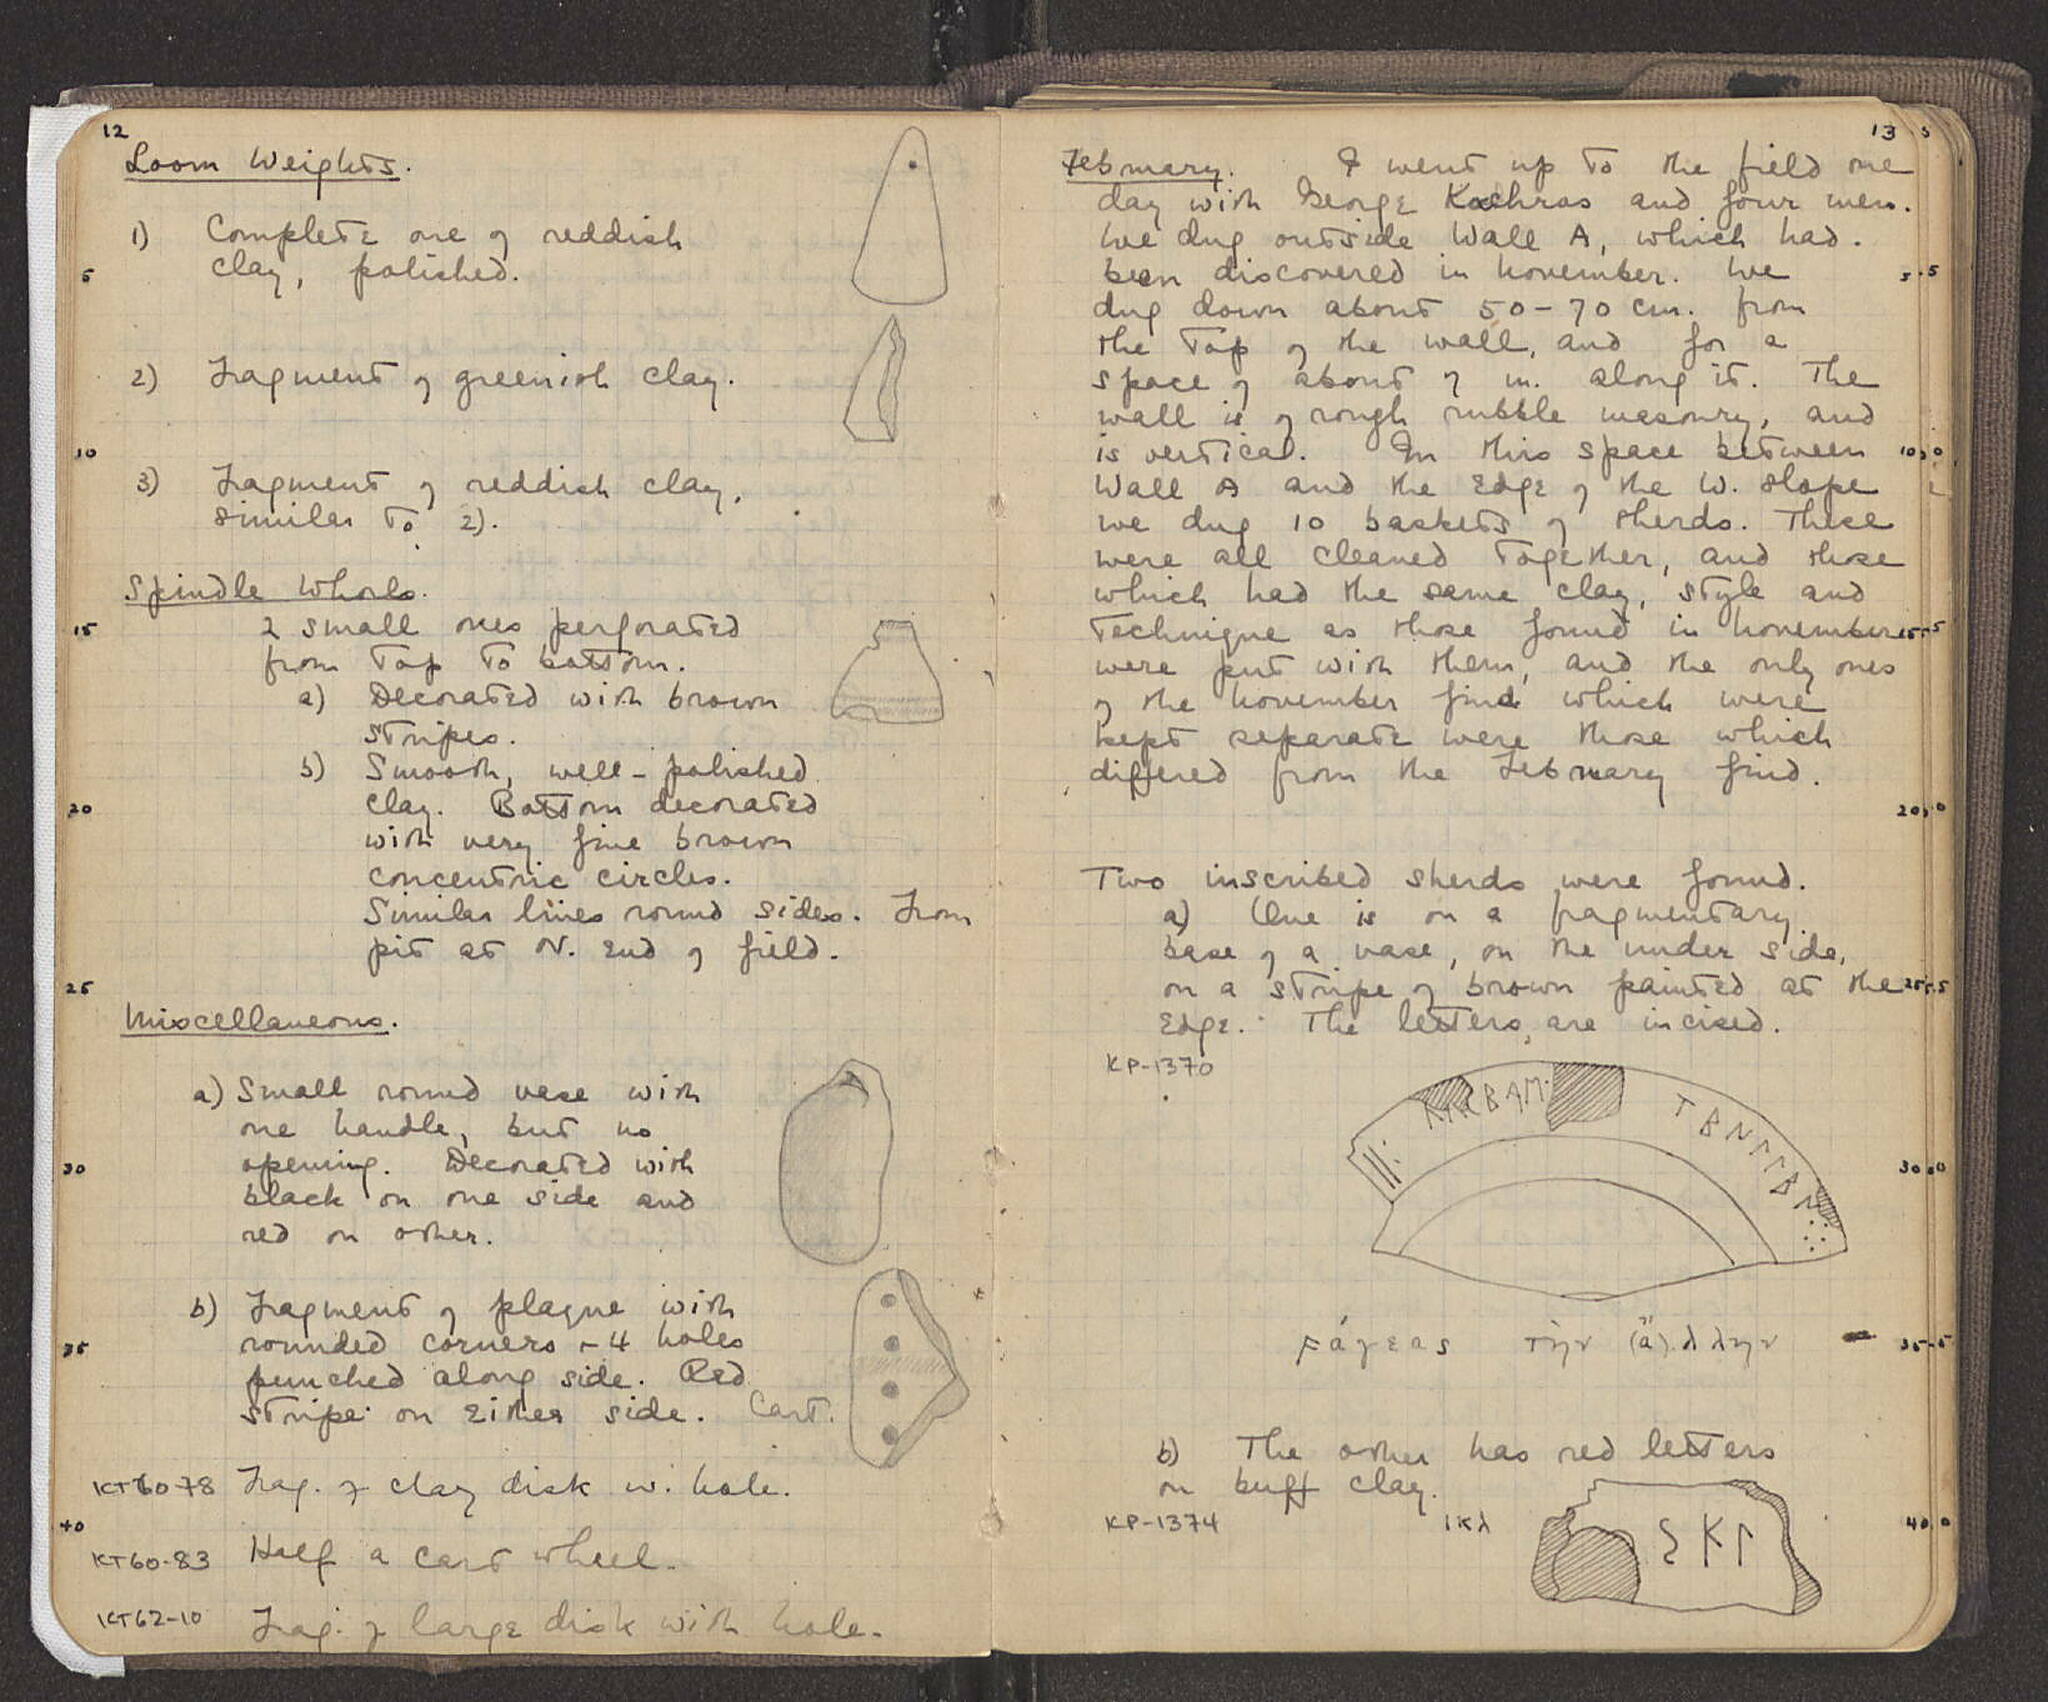 12
Loom Weights.
1) Complete one of reddish
clay, polished.
5
2) Fragment of greenish clay.
10
3) Fragment of reddish clay,
similar to 2).
Spindle Whorls.
15
2 small ones perforated
from top to bottom.
a) Decorated with brown
stripes.
b) Smooth, well-polished
20
clay. Bottom decorated
with very fine brown
concentric circles.
Similar lines round sides. From
pit at N. end of field.
25
Miscellaneous.
a) Small round vase with
one handle, but no
30
opening. Decorated with
black on one side and
red on other.
b) Fragment of plaque with
35
rounded corners - 4 holes
punched along side. Red
stripe on either side. Cart.
KT60-78 Frag. of clay disk w. hole.
40
KT60-83 Half a cart wheel.
KT62-10 Frag. of large disk with hole.
13
February. I went up to the field one
day with George Kachros and four men.
We dug outside Wall A, which had
been discovered in November. We
5
dug down about 50-70 cm. from
the top of the wall, and for a
space of about 7 m. along it. The
wall is of rough rubble masonry, and
is vertical. In this space between
10
Wall A and the edge of the W. slope
we dug 10 baskets of sherds. These
were all cleaned together, and those
which had the same clay, style and
technique as those found in November
15
were put with them, and the only ones
of the November find which were
kept separate were those which
differed from the February find.
20
Two inscribed sherds were found.
a) One is on a fragmentary
base of a vase, on the under side,
on a stripe of brown painted at the
25
edge. The letters are incised.
KP-1370
30
ϝάγεας τὴν (ἄ)λλην
35
b) The other has red letters
on buff clay.
KP-1374 ικλ
40